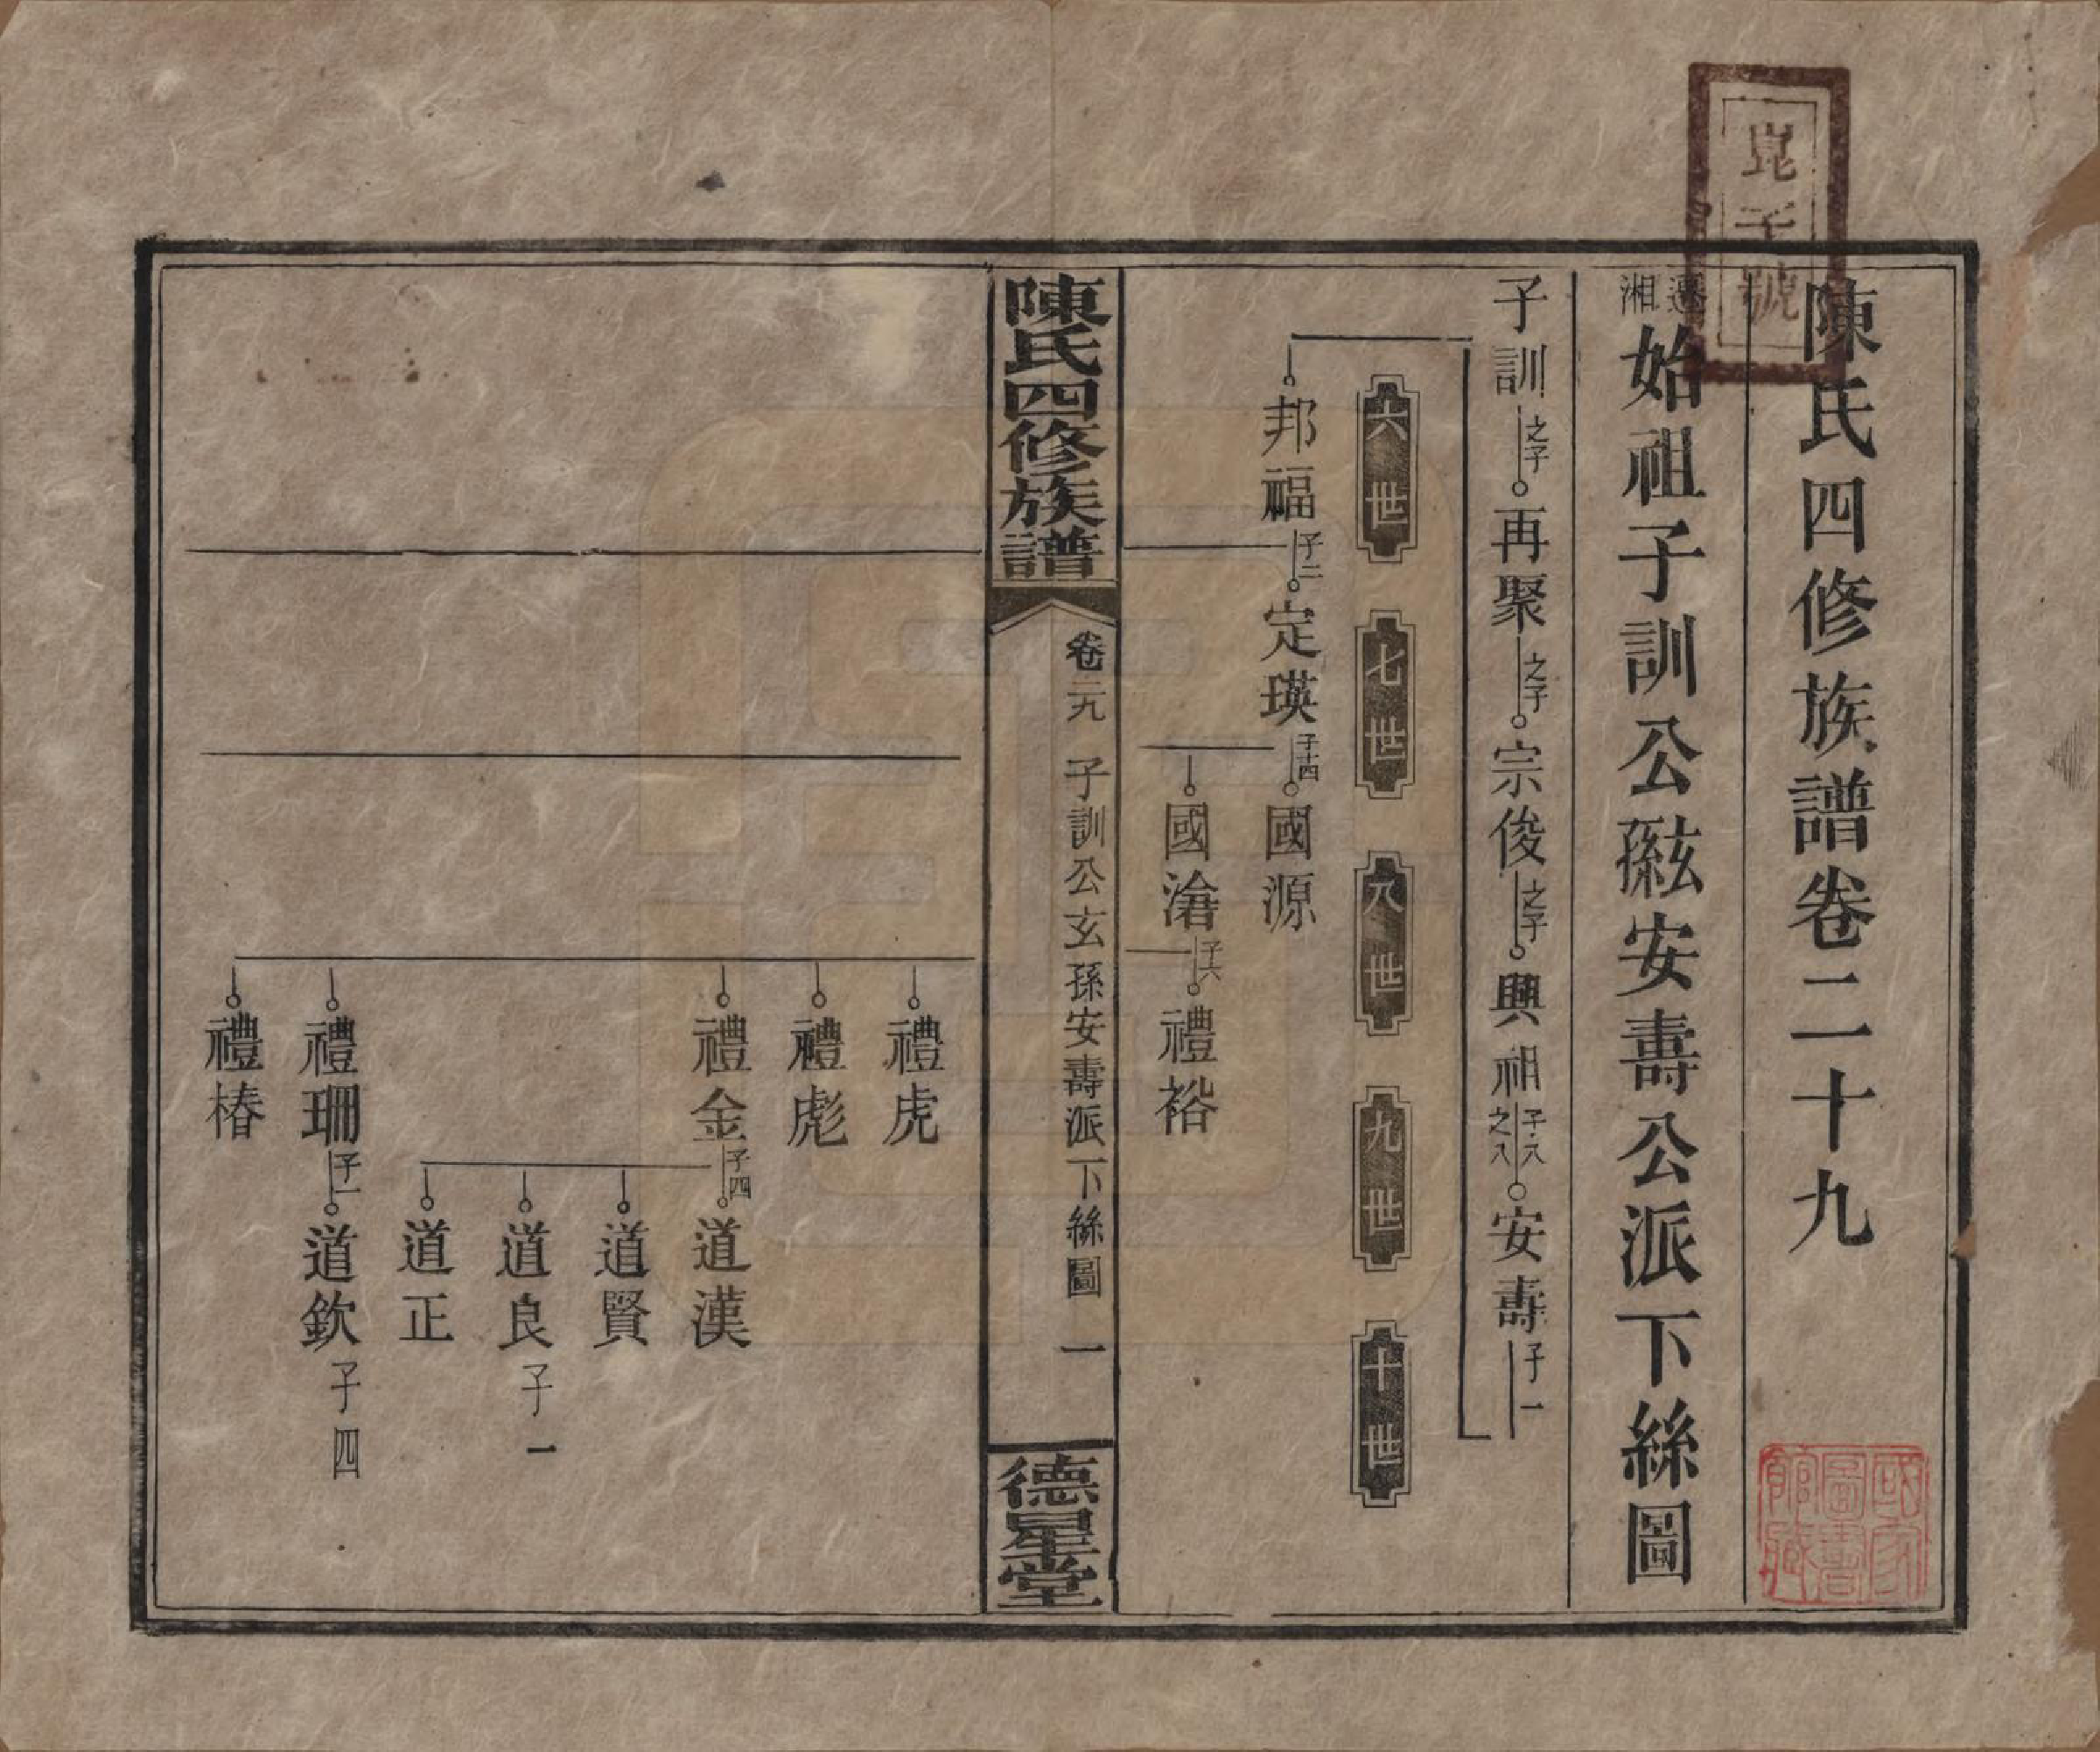 陳氏四修族譜卷二十九
遷湘始祖子訓公玄孫安壽公派下絲圖
子訓之子再聚之子宗俊之子興祖子八之八安壽子一
六世
七世
八世
九世
十世
邦福子二定瑛子十四國源
國濸子六禮裕
陳氏四修族譜
卷二九 子訓公玄孫安壽派下絲圖 一
德星堂
禮虎
禮彪
禮金子四道漢
道賢
道良子一
道正
禮珊子一道欽子四
禮椿
國家圖書館藏